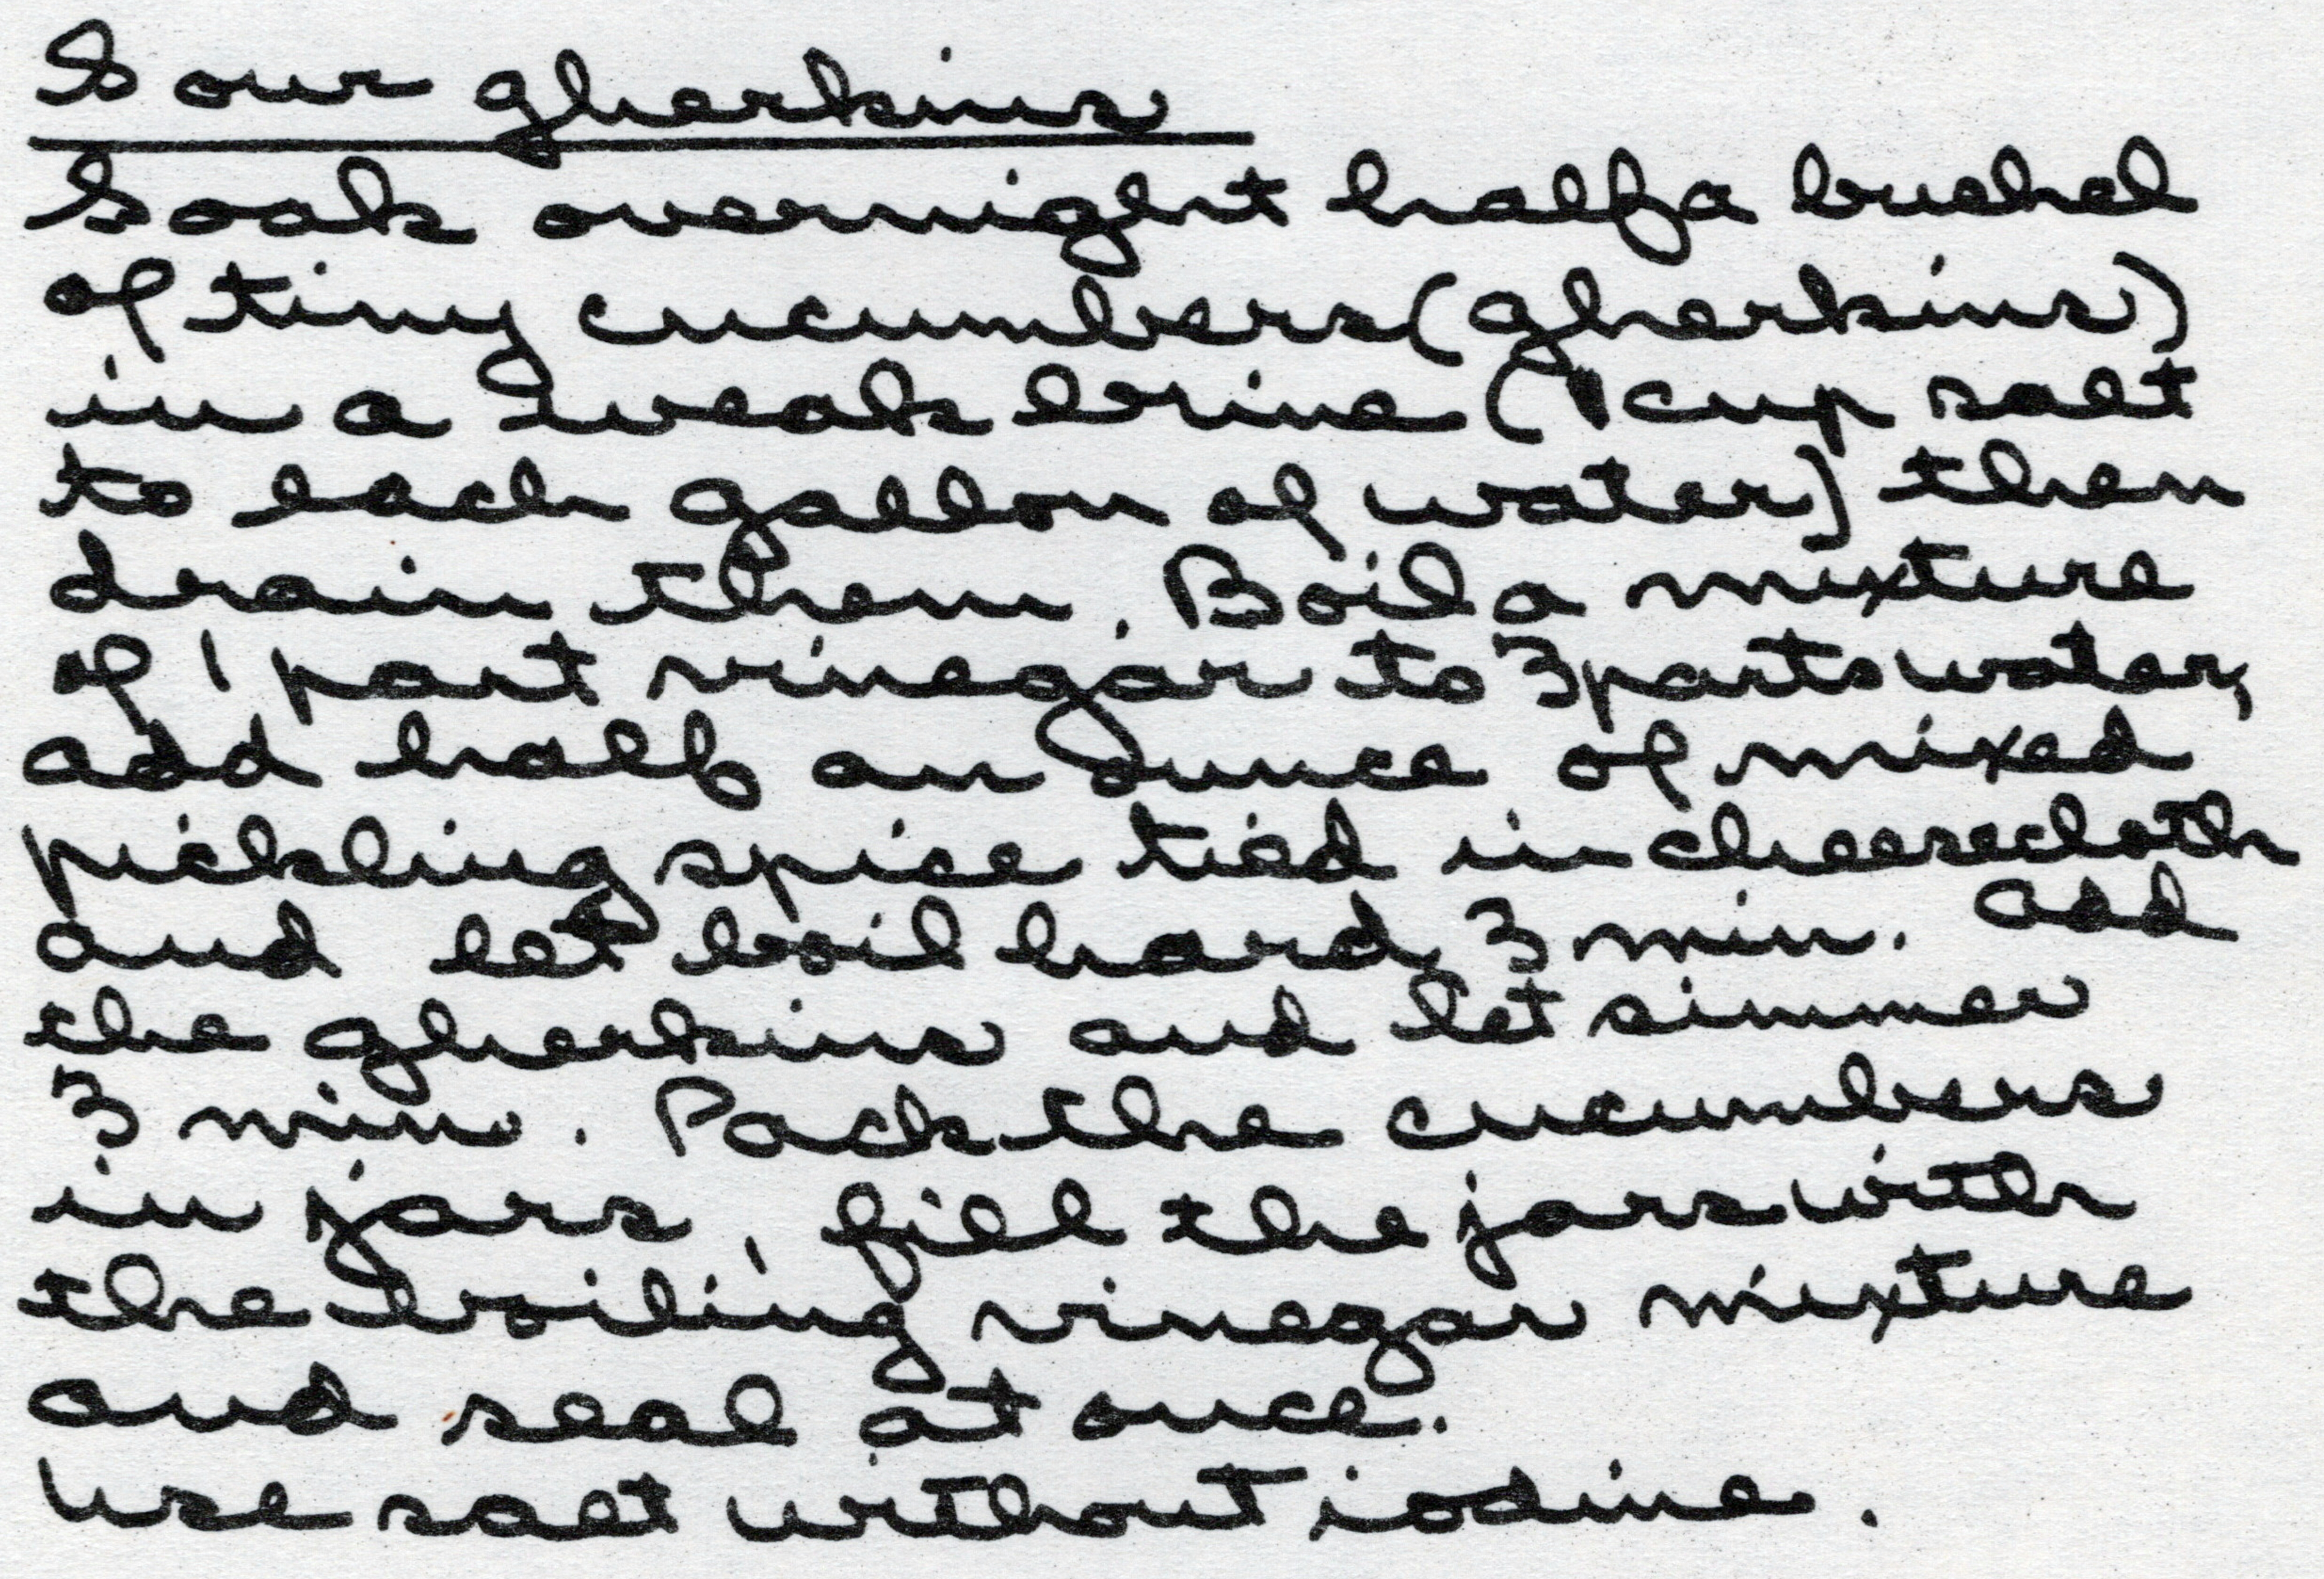 Sour gherkins
Soak overnight half a bushel
of tiny cucumbers (gherkins)
in a weak brine (1 cup salt
to each gallon of water) then
drain them. Boil a mixture
of 1 part vinegar to 3 parts water,
add half an ounce of mixed
pickling spice tied in cheesecloth
and let boil hard 3 min. Add
the gherkins and let simmer
3 min. Pack the cucumbers
in jars, fill the jars with
the boiling vinegar mixture
and seal at once.
Use salt without iodine.